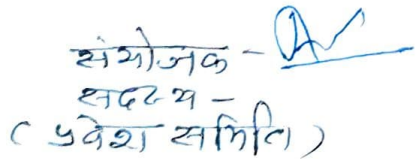 संयोजक -
सदस्य -
( प्रवेश समिति )